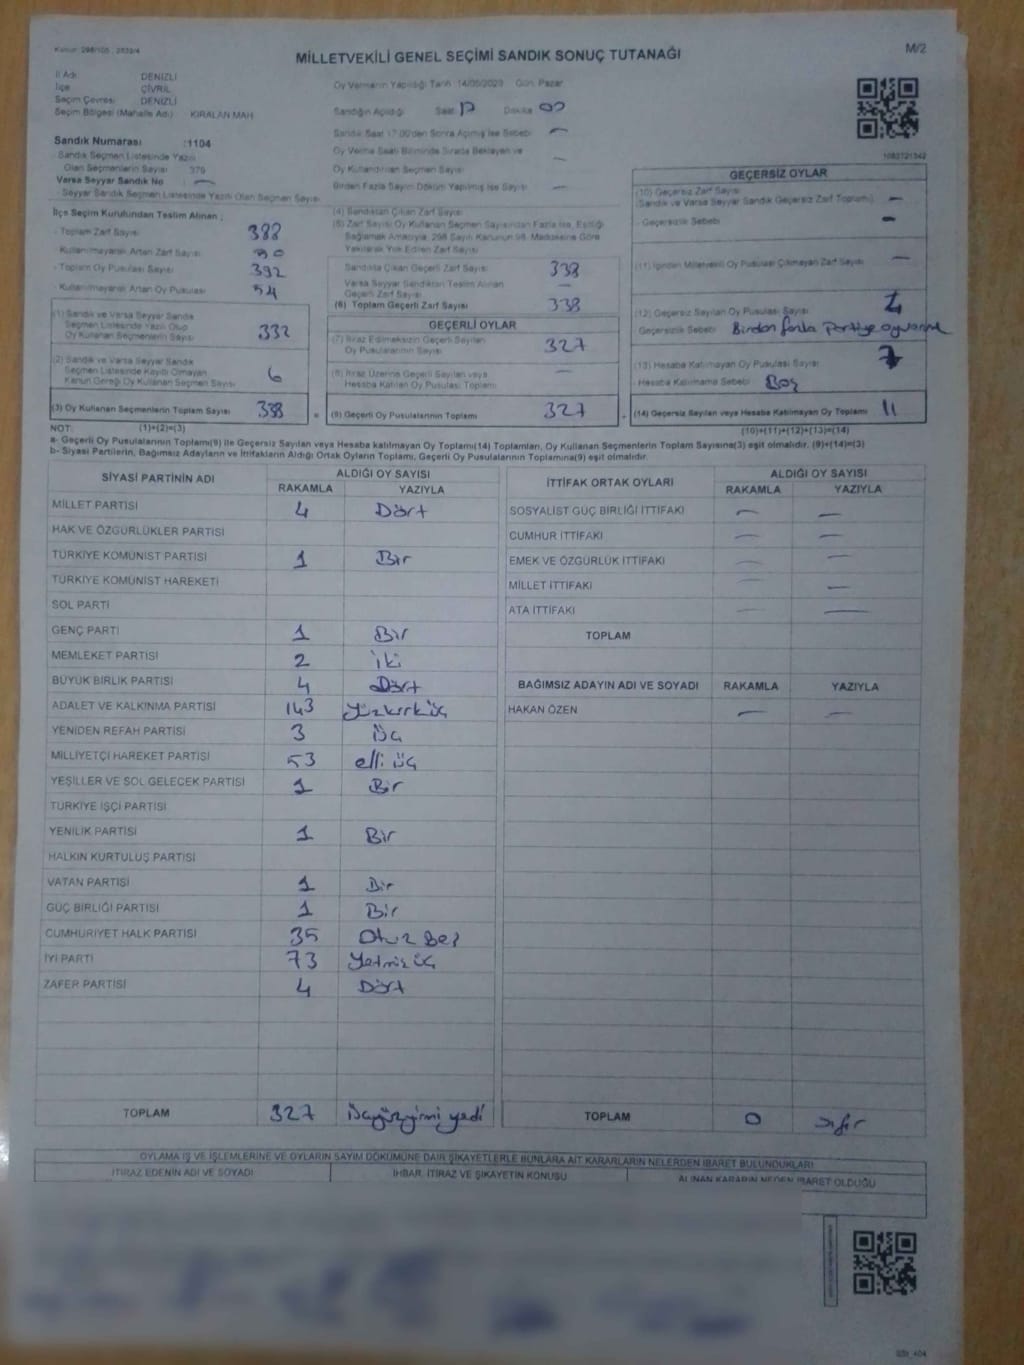 MİLLETVEKİLİ GENEL SEÇİMİ SANDIK SONUÇ TUTANAĞI
M/2
İl Adı DENİZLİ
İlçe ÇİVRİL
Seçim Çevresi DENİZLİ
Seçim Bölgesi (Mahalle Adı) KIRALAN MAH
Oy Vermenin Yapıldığı Tarih :14/05/2023 Gün: Pazar
Sandığın Açıldığı Saat 17 Dakika 00
Sandık Saat 17.00'den Sonra Açılmış İse Sebebi —
Oy Verme Saati Bitiminde Sırada Bekleyen ve
Oy Kullandırılan Seçmen Sayısı —
Birden Fazla Sayım Döküm Yapılmış İse Sayısı —
Sandık Numarası :1104
- Sandık Seçmen Listesinde Yazılı
Olan Seçmenlerin Sayısı 379
Varsa Seyyar Sandık No —
- Seyyar Sandık Seçmen Listesinde Yazılı Olan Seçmen Sayısı
İlçe Seçim Kurulundan Teslim Alınan ;
- Toplam Zarf Sayısı 388
- Kullanılmayarak Artan Zarf Sayısı
- Toplam Oy Pusulası Sayısı 392
- Kullanılmayarak Artan Oy Pusulası 54
(1) Sandık ve Varsa Seyyar Sandık
Seçmen Listesinde Yazılı Olup
Oy Kullanan Seçmenlerin Sayısı 332
(2) Sandık ve Varsa Seyyar Sandık
Seçmen Listesinde Kayıtlı Olmayan
Kanun Gereği Oy Kullanan Seçmen Sayısı 6
(3) Oy Kullanan Seçmenlerin Toplam Sayısı 338
(4) Sandıktan Çıkan Zarf Sayısı
(5) Zarf Sayısı Oy Kullanan Seçmen Sayısından Fazla İse, Eşitliği
Sağlamak Amacıyla, 298 Sayılı Kanunun 98. Maddesine Göre
Yakılarak Yok Edilen Zarf Sayısı
Sandıkta Çıkan Geçerli Zarf Sayısı 338
Varsa Seyyar Sandıktan Teslim Alınan
Geçerli Zarf Sayısı —
(6) Toplam Geçerli Zarf Sayısı 338
GEÇERLİ OYLAR
(7) İtiraz Edilmeksizin Geçerli Sayılan
Oy Pusulalarının Sayısı 327
(8) İtiraz Üzerine Geçerli Sayılan veya
Hesaba Katılan Oy Pusulası Toplamı —
(9) Geçerli Oy Pusulalarının Toplamı 327
GEÇERSİZ OYLAR
(10) Geçersiz Zarf Sayısı
(Sandık ve Varsa Seyyar Sandık Geçersiz Zarf Toplamı) —
- Geçersizlik Sebebi —
(11) İçinden Milletvekili Oy Pusulası Çıkmayan Zarf Sayısı —
(12) Geçersiz Sayılan Oy Pusulası Sayısı 4
Geçersizlik Sebebi Birden fazla Partiye
(13) Hesaba Katılmayan Oy Pusulası Sayısı 7
- Hesaba Katılmama Sebebi Boş
(14) Geçersiz Sayılan veya Hesaba Katılmayan Oy Toplamı 11
NOT: (1)+(2)=(3)
(10)+(11)+(12)+(13)=(14)
a- Geçerli Oy Pusulalarının Toplamı(9) ile Geçersiz Sayılan veya Hesaba katılmayan Oy Toplamı(14) Toplamları, Oy Kullanan Seçmenlerin Toplam Sayısına(3) eşit olmalıdır. (9)+(14)=(3)
b- Siyasi Partilerin, Bağımsız Adayların ve İttifakların Aldığı Ortak Oyların Toplamı, Geçerli Oy Pusulalarının Toplamına(9) eşit olmalıdır.
SİYASİ PARTİNİN ADI ALDIĞI OY SAYISI
RAKAMLA YAZIYLA
MİLLET PARTİSİ 4 Dört
HAK VE ÖZGÜRLÜKLER PARTİSİ
TÜRKİYE KOMÜNİST PARTİSİ 1 Bir
TÜRKİYE KOMÜNİST HAREKETİ
SOL PARTİ
GENÇ PARTİ 1 Bir
MEMLEKET PARTİSİ 2 İki
BÜYÜK BİRLİK PARTİSİ 4 Dört
ADALET VE KALKINMA PARTİSİ 143 yüzkırküç
YENİDEN REFAH PARTİSİ 3 Üç
MİLLİYETÇİ HAREKET PARTİSİ 53 elli üç
YEŞİLLER VE SOL GELECEK PARTİSİ 1 Bir
TÜRKİYE İŞÇİ PARTİSİ
YENİLİK PARTİSİ 1 Bir
HALKIN KURTULUŞ PARTİSİ
VATAN PARTİSİ 1 Bir
GÜÇ BİRLİĞİ PARTİSİ 1 Bir
CUMHURİYET HALK PARTİSİ 35 Otuz Beş
İYİ PARTİ 73 Yetmiş üç
ZAFER PARTİSİ 4 Dört
TOPLAM 327 üçyüzyirmi yedi
İTTİFAK ORTAK OYLARI ALDIĞI OY SAYISI
RAKAMLA YAZIYLA
SOSYALİST GÜÇ BİRLİĞİ İTTİFAKI — —
CUMHUR İTTİFAKI — —
EMEK VE ÖZGÜRLÜK İTTİFAKI — —
MİLLET İTTİFAKI — —
ATA İTTİFAKI — —
TOPLAM
BAĞIMSIZ ADAYIN ADI VE SOYADI RAKAMLA YAZIYLA
HAKAN ÖZEN — —
TOPLAM 0 Sıfır
OYLAMA İŞ VE İŞLEMLERİNE VE OYLARIN SAYIM DÖKÜMÜNE DAİR ŞİKAYETLERLE BUNLARA AİT KARARLARIN NELERDEN İBARET BULUNDUKLARI
İTİRAZ EDENİN ADI VE SOYADI İHBAR, İTİRAZ VE ŞİKAYETİN KONUSU ALINAN KARARIN NEDEN İBARET OLDUĞU